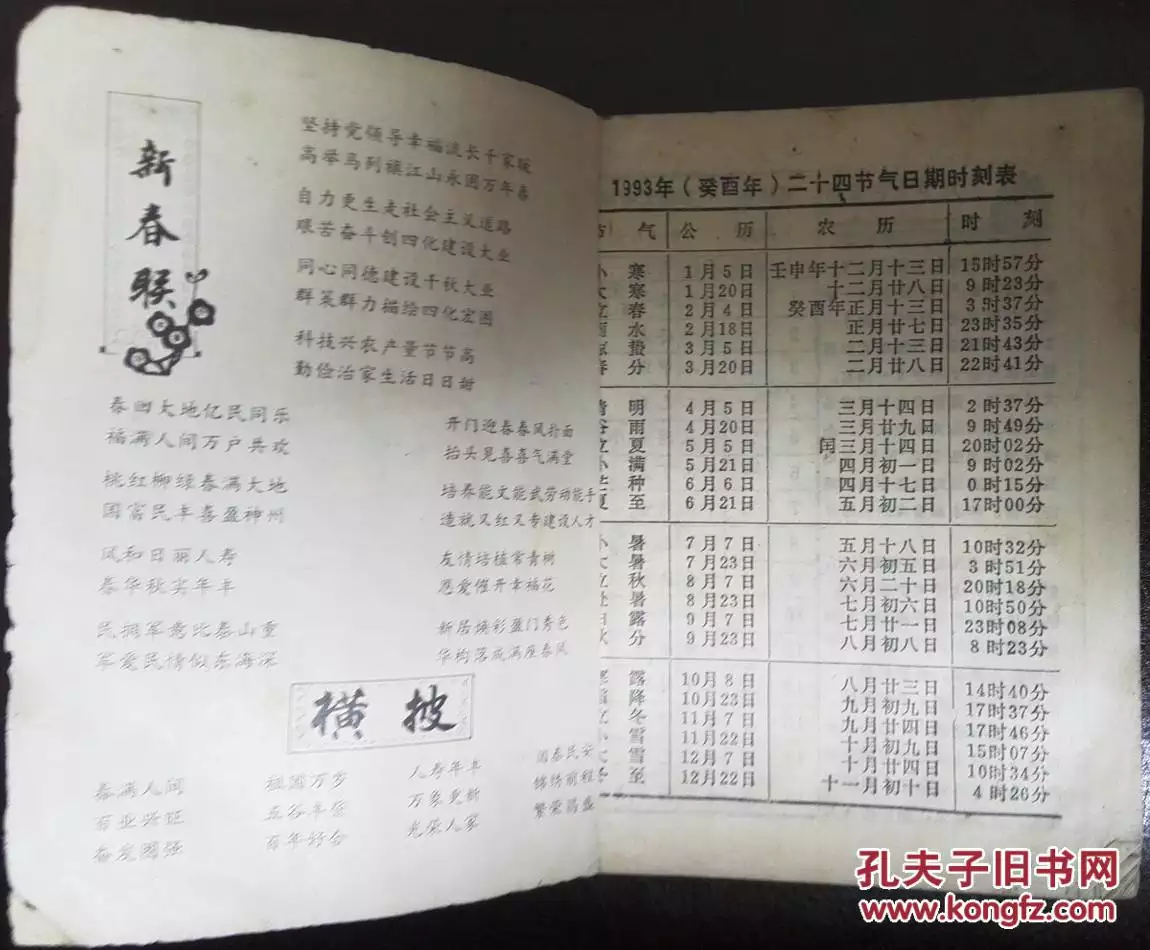 新春联
坚持党领导幸福流长千家暖
高举马列旗江山永固万年春
自力更生走社会主义道路
艰苦奋斗创四化建设大业
同心同德建设千秋大业
群策群力描绘四化宏图
科技兴农产量节节高
勤俭治家生活日日甜
春回大地亿民同乐
福满人间万户共欢
桃红柳绿春满大地
国富民丰喜盈神州
风和日丽人寿
春华秋实年丰
民拥军意比泰山重
军爱民情似东海深
开门迎春春风扑面
抬头见喜喜气满堂
培养能文能武劳动能手
造就又红又专建设人才
友情培植常青树
恩爱催开幸福花
新居焕彩盈门秀色
华构落成满座春风
横披
春满人间 祖国万岁 人寿年丰 国泰民安
百业兴旺 五谷丰登 万象更新 锦绣前程
奋发图强 百年好合 光荣人家 繁荣昌盛
1993年(癸酉年)二十四节气日期时刻表
节气 公历 农历 时刻
小寒 1月5日 壬申年十二月十三日 15时57分
大寒 1月20日 十二月廿八日 9时23分
立春 2月4日 癸酉年正月十三日 3时37分
雨水 2月18日 正月廿七日 23时35分
惊蛰 3月5日 二月十三日 21时43分
春分 3月20日 二月廿八日 22时41分
清明 4月5日 三月十四日 2时37分
谷雨 4月20日 三月廿九日 9时49分
立夏 5月5日 闰三月十四日 20时02分
小满 5月21日 四月初一日 9时02分
芒种 6月6日 四月十七日 0时15分
夏至 6月21日 五月初二日 17时00分
小暑 7月7日 五月十八日 10时32分
大暑 7月23日 六月初五日 3时51分
立秋 8月7日 六月二十日 20时18分
处暑 8月23日 七月初六日 10时50分
白露 9月7日 七月廿一日 23时08分
秋分 9月23日 八月初八日 8时23分
寒露 10月8日 八月廿三日 14时40分
霜降 10月23日 九月初九日 17时37分
立冬 11月7日 九月廿四日 17时46分
小雪 11月22日 十月初九日 15时07分
大雪 12月7日 十月廿四日 10时34分
冬至 12月22日 十一月初十日 4时26分
孔夫子旧书网
www.kongfz.com